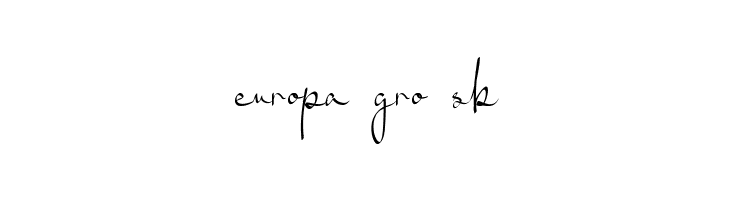 europa gro sk